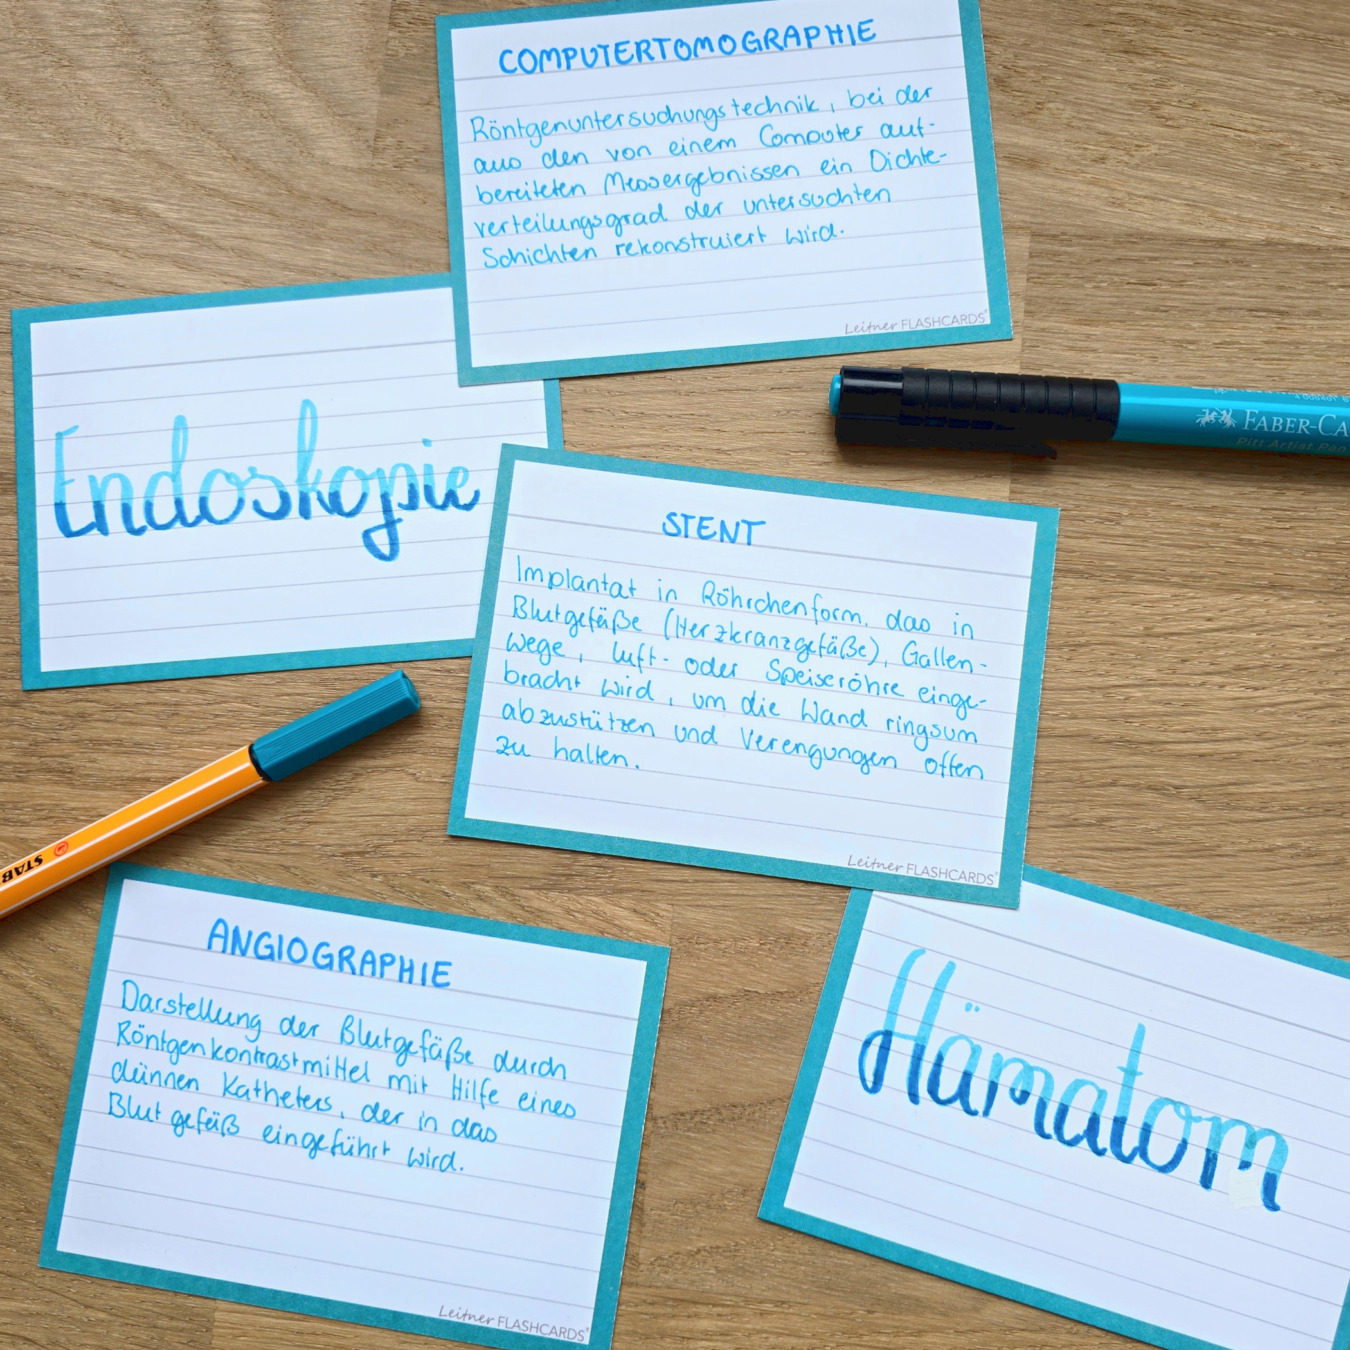 COMPUTERTOMOGRAPHIE
Röntgenuntersuchungstechnik, bei der
aus den von einem Computer auf-
bereiteten Messergebnissen ein Dichte-
verteilungsgrad der untersuchten
Schichten rekonstruiert wird.
Leitner FLASHCARDS®
Endoskopie
FABER-CA
Pitt Artist Pen
STENT
Implantat in Röhrchenform, das in
Blutgefäße (Herzkranzgefäße), Gallen-
wege, Luft- oder Speiseröhre einge-
bracht wird, um die Wand ringsum
abzustützen und Verengungen offen
zu halten.
Leitner FLASHCARDS®
STAB
ANGIOGRAPHIE
Darstellung der Blutgefäße durch
Röntgenkontrastmittel mit Hilfe eines
dünnen Katheters, der in das
Blutgefäß eingeführt wird.
Leitner FLASHCARDS®
Hämatom